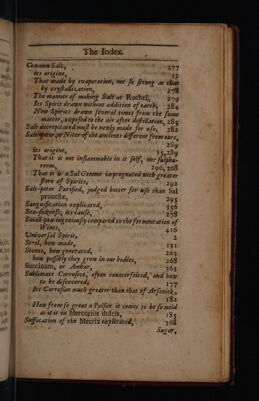 The Index.
Common Salt, 277
its origine, 13
That made by evaporation, not so strong as that
by crystallization, 278
The manner of making Salt at Rochel, 279
Its Spirit drawn without addition of earth, 284
New Spirits drawn several times from the same
matter, exposed to the air after distillation, 285
Salt decrepitated must be newly made for use, 282
Salt-peter, or Niter of the ancients different from ours,
289
its origine, 15, 289
That it is not inflammable in it self, nor sulphu-
reous, 290, 208
That it is a Sal Gemme impregnated with greater
store of Spirits, 292
Salt-peter Purified, judged better for use than Sal
prunellæ, 295
Sanguification explained, 556
Sea-sickness, its cause, 278
Small-pox ingeniously compared to the fermentation of
Wines, 416
Universal Spirit, 2
Steel, how made, 131
Stones, how generated, 263
how possibly they grow in our bodies, 268
Succinum, or Amber, 363
Sublimate Corrosive, often counterfeited, and how
to be discovered, 177
Its Corrosion much greater than that of Arsenick,
182
How from so great a Poison it comes to be so mild
as it is in Mercurius dulcis, 185
Suffocation of the Matrix explicated, 368
Sugar,